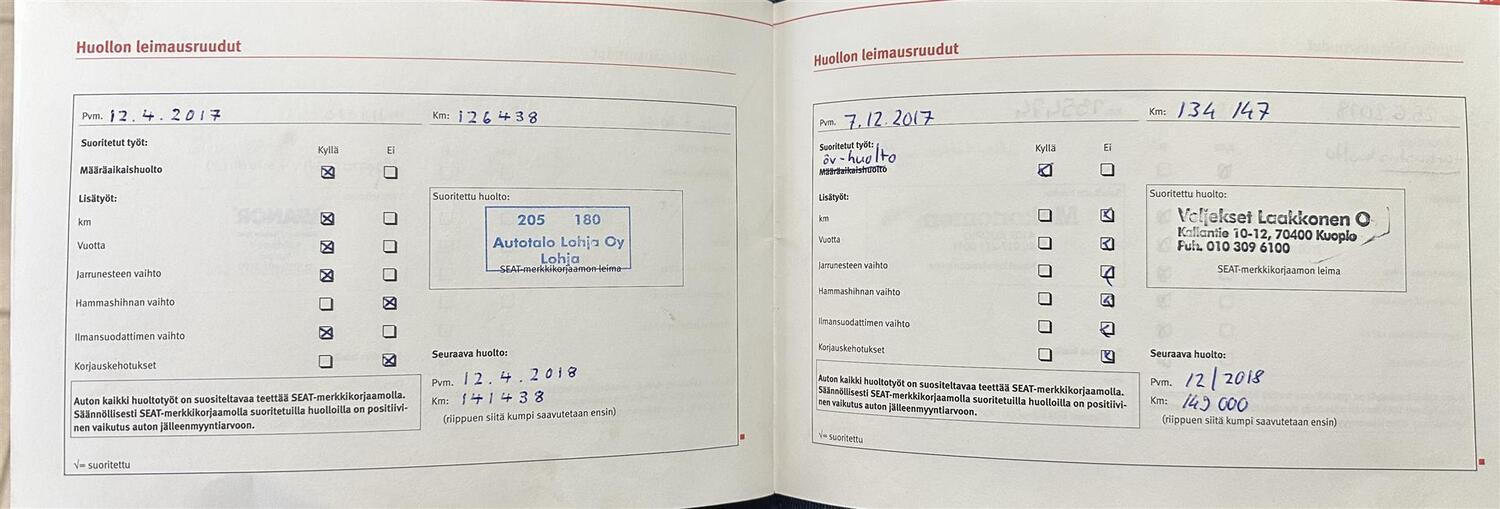 Huollon leimausruudut
Pvm. 12.4.2017 Km: 126438
Suoritetut työt:
Kyllä Ei
Määräaikaishuolto
Lisätyöt:
km
Vuotta
Jarrunesteen vaihto
Hammashihnan vaihto
Ilmansuodattimen vaihto
Korjauskehotukset
Suoritettu huolto:
205 180
Autotalo Lohja Oy
Lohja
SEAT-merkkikorjaamon leima
Seuraava huolto:
Pvm. 12.4.2018
Km: 141438
(riippuen siitä kumpi saavutetaan ensin)
Auton kaikki huoltotyöt on suositeltavaa teettää SEAT-merkkikorjaamolla.
Säännöllisesti SEAT-merkkikorjaamolla suoritetuilla huolloilla on positiivi-
nen vaikutus auton jälleenmyyntiarvoon.
√= suoritettu
Huollon leimausruudut
Pvm. 7.12.2017 Km: 134 147
Suoritetut työt:
Kyllä Ei
öv-huolto
Määräaikaishuolto
Lisätyöt:
km
Vuotta
Jarrunesteen vaihto
Hammashihnan vaihto
Ilmansuodattimen vaihto
Korjauskehotukset
Suoritettu huolto:
Veljekset Laakkonen O
Kallantie 10-12, 70400 Kuopio
Puh. 010 309 6100
SEAT-merkkikorjaamon leima
Seuraava huolto:
Pvm. 12/2018
Km: 149 000
(riippuen siitä kumpi saavutetaan ensin)
Auton kaikki huoltotyöt on suositeltavaa teettää SEAT-merkkikorjaamolla.
Säännöllisesti SEAT-merkkikorjaamolla suoritetuilla huolloilla on positiivi-
nen vaikutus auton jälleenmyyntiarvoon.
√= suoritettu